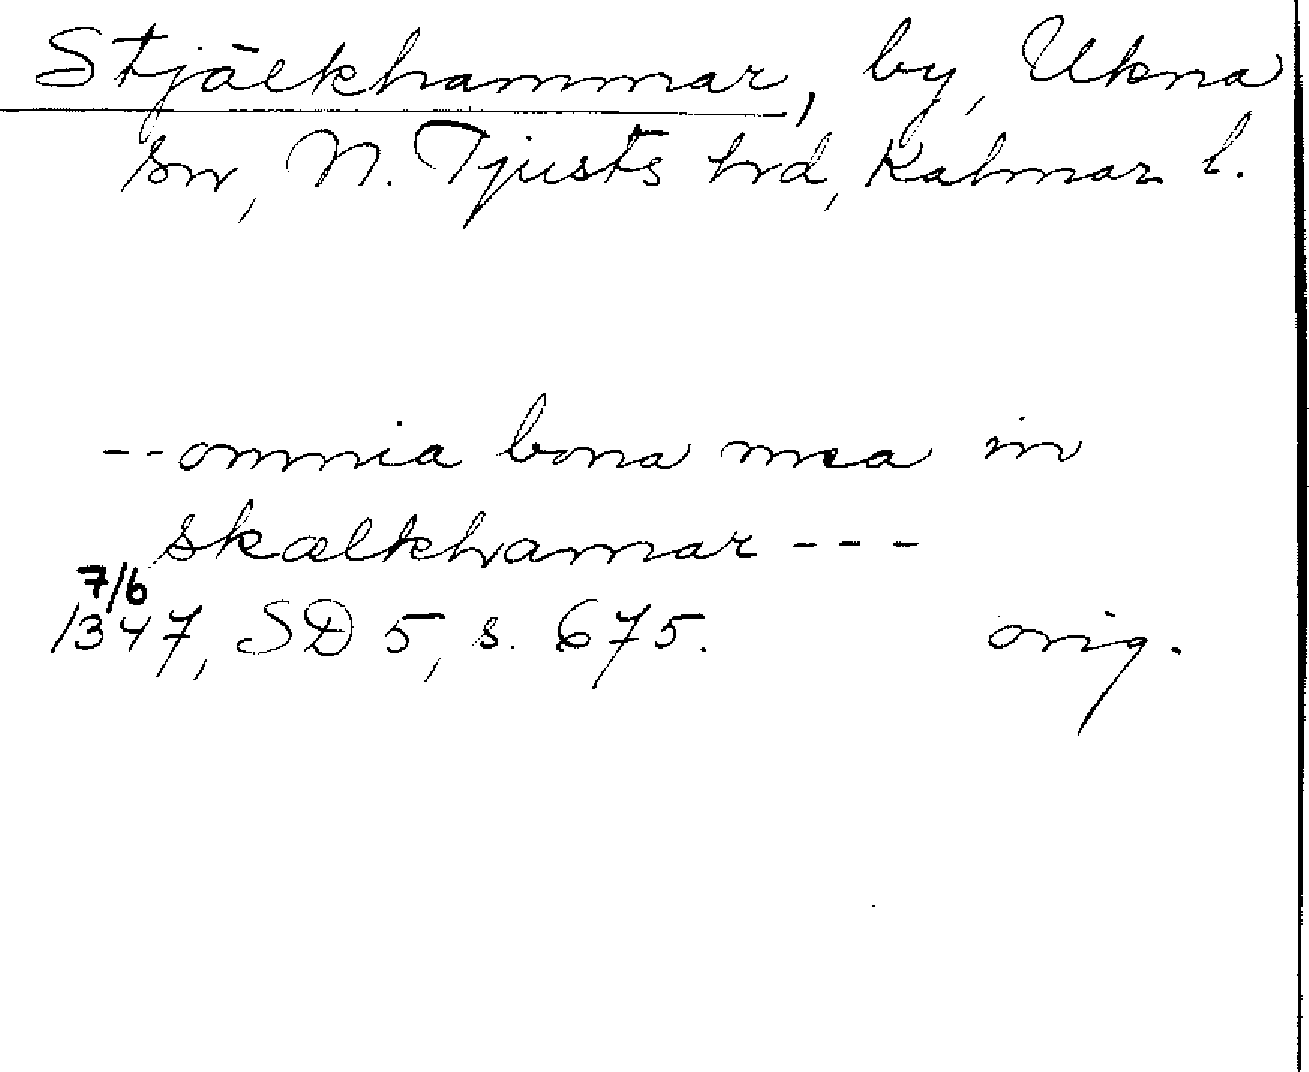 Stjälkhammar, by, Ukna
sn, N. Tjusts hd, Kalmar l.
--omnia bona mea in
skælkhamar ---
7/6
1347, SD 5, s. 675. orig.